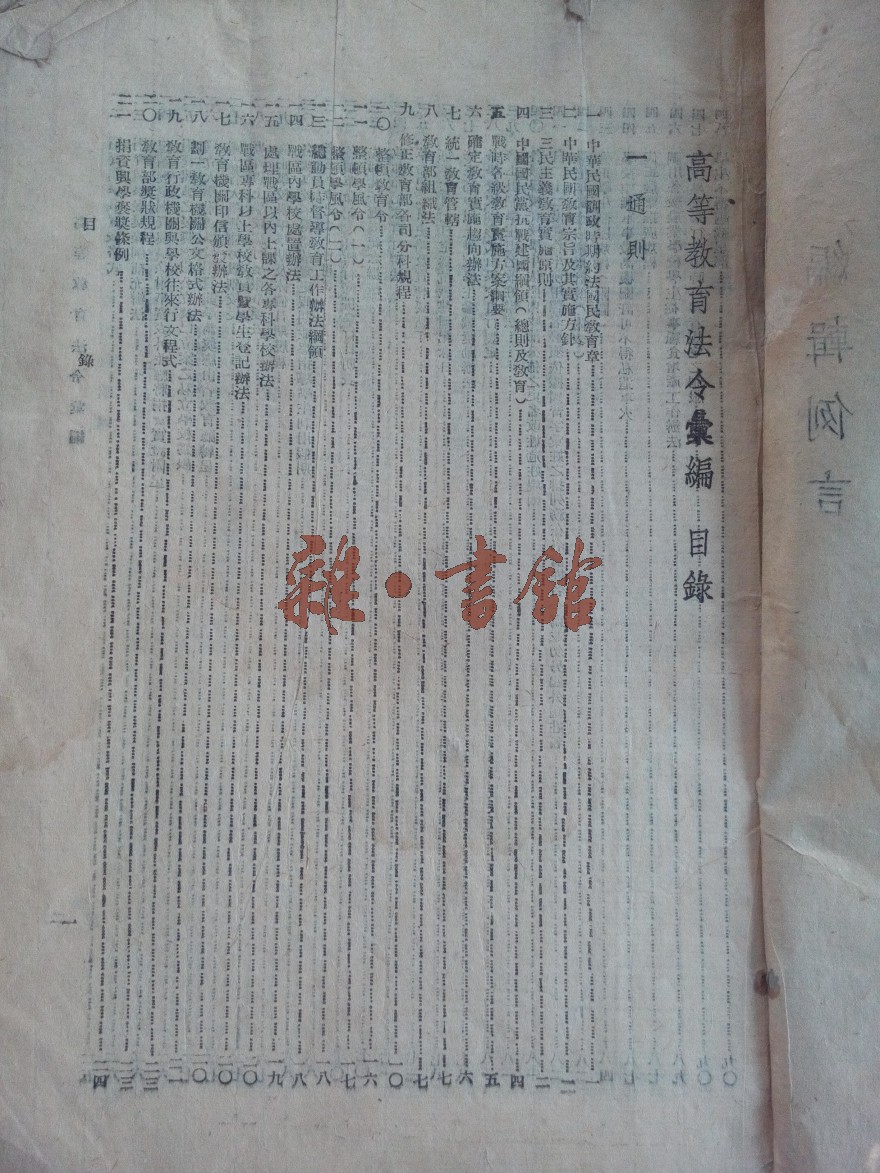 高等教育法令彙編 目錄
一 通則
一 中華民國訓政時期約法國民教育章 一
二 中華民國教育宗旨及其實施方針 二
三 三民主義教育實施原則 二
四 中國國民黨抗戰建國綱領(總則及教育) 四
五 戰時各級教育實施方案綱要 五
六 確定教育實施趨向辦法 六
七 統一教育管轄 七
八 教育部組織法 七
九 修正教育部各司分科規程 一〇
一〇 整頓教育令 一六
一一 整頓學風令(一) 一七
一二 整頓學風令(二) 一八
一三 總動員時督導教育工作辦法綱領 一八
一四 戰區內學校處置辦法 一八
一五 處理戰區以內上課之各專科學校辦法 一九
一六 戰區專科以上學校教員暨學生登記辦法 二〇
一七 教育機關印信頒發辦法 二〇
一八 劃一教育機關公文格式辦法 二〇
一九 教育行政機關與學校往來行文程式 二二
二〇 教育部獎狀規程 二三
二一 捐資興學褒獎條例 二四
高等教育法令彙編
目錄
一
編輯例言
雜·書館